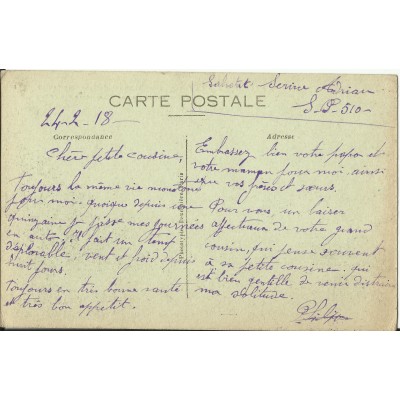 CARTE POSTALE
S.P. 510
24-2-18
Correspondance
Adresse
Chère petite cousine,
Toujours la même vie monotone
pour moi. quoique depuis une
quinzaine je passe mes journées
en auto. Il fait un temps
déplorable, vent et froid depuis
huit jours.
Toujours en très bonne santé
et très bon appétit.
Embrassez bien votre papa et
votre maman pour moi. ainsi
que vos frères et sœurs.
Pour vous, un baiser
affectueux de votre grand
cousin, qui pense souvent
à sa petite cousine, qui
est bien gentille de venir distraire
ma solitude.